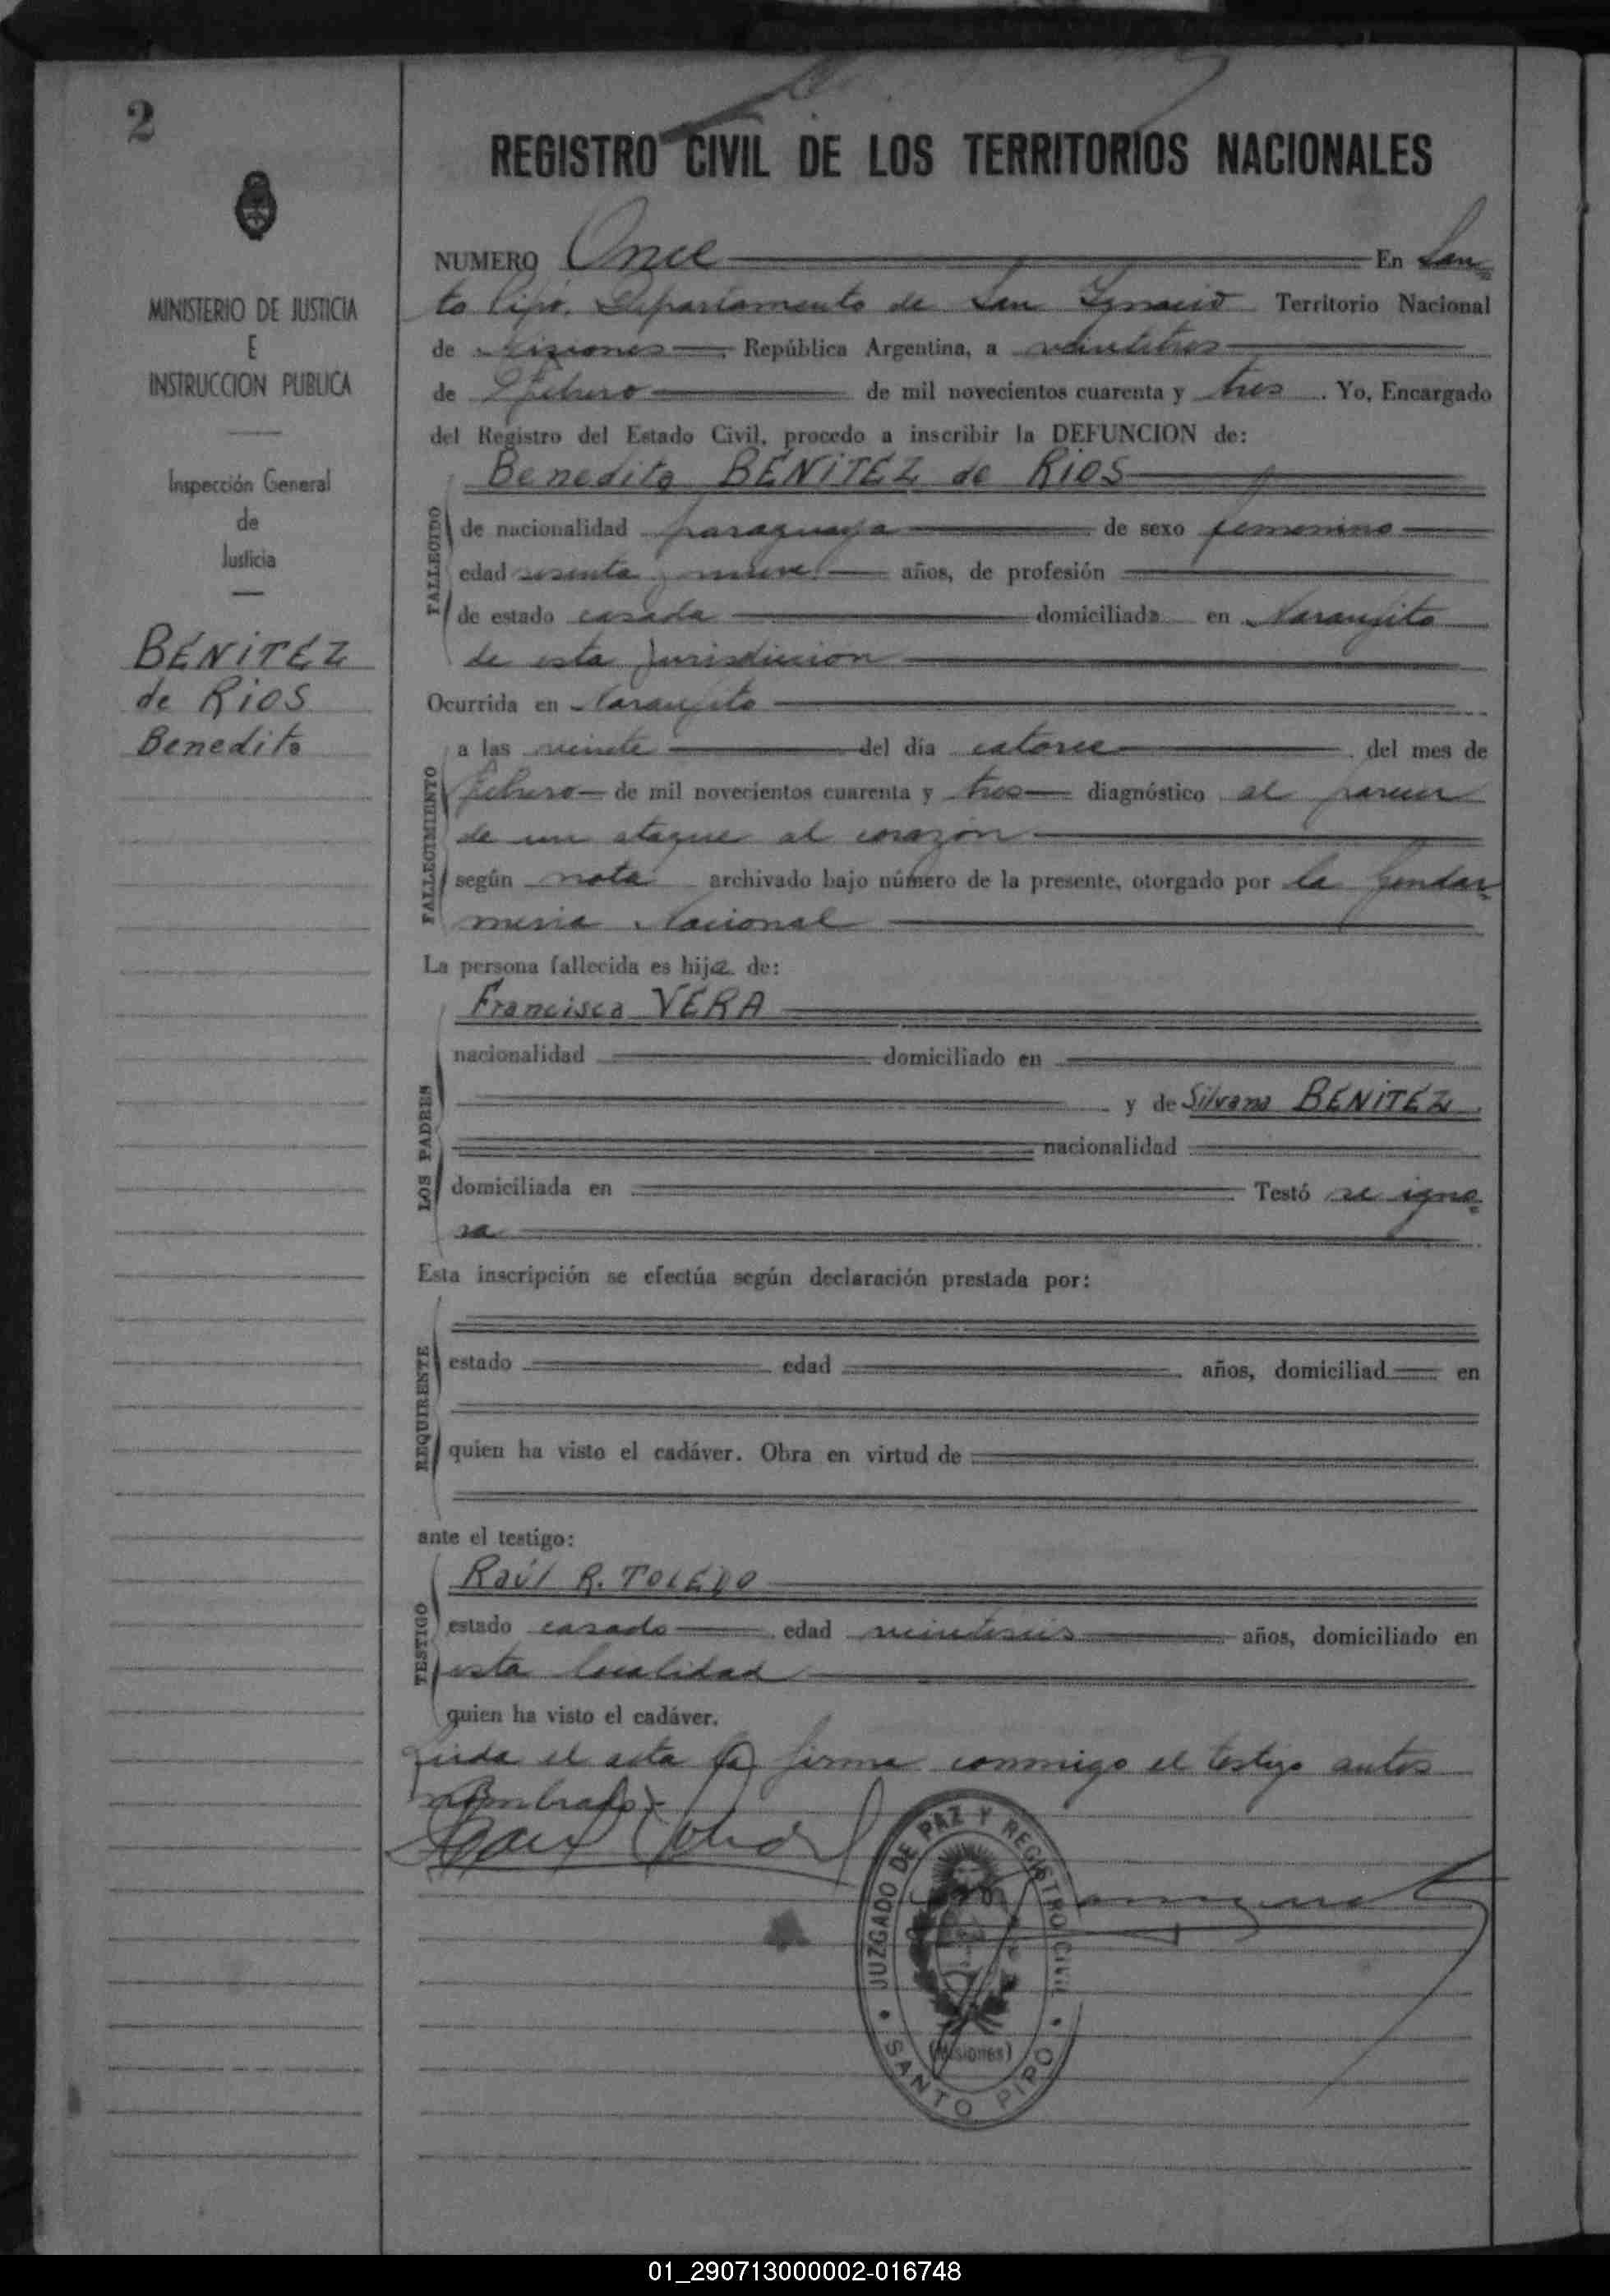 2
REGISTRO CIVIL DE LOS TERRITORIOS NACIONALES
MINISTERIO DE JUSTICIA
E
INSTRUCCION PUBLICA
Inspección General
de
Justicia
BENITEZ
de RIOS
Benedita
NUMERO Once En San
to Pipó. Departamento de San Ignacio Territorio Nacional
de Misiones República Argentina, a veintitres
de Febrero de mil novecientos cuarenta y tres. Yo, Encargado
del Registro del Estado Civil, procedo a inscribir la DEFUNCION de:
Benedita BENITEZ de RIOS
FALLECIDO
de nacionalidad paraguaya de sexo femenino
edad sesenta y nueve años, de profesión
de estado casada domiciliada en Naranjito
de esta jurisdiccion
Ocurrida en Naranjito
FALLECIMIENTO
a las veinte del día catorce del mes de
Febrero de mil novecientos cuarenta y tres diagnóstico al parecer
de un ataque al corazón
según nota archivado bajo número de la presente, otorgado por la Gendar
meria Nacional
La persona fallecida es hija de:
Francisca VERA
LOS PADRES
nacionalidad domiciliado en
y de Silvana BENITEZ
nacionalidad
domiciliada en Testó se igno
ra
Esta inscripción se efectúa según declaración prestada por:
REQUIRENTE
estado edad años, domiciliad en
quien ha visto el cadáver. Obra en virtud de
ante el testigo:
Raúl R. TOLEDO
TESTIGO
estado casado edad veintiseis años, domiciliado en
esta localidad
quien ha visto el cadáver.
Leida el acta la firma conmigo el testigo antes
nombrado.-
JUZGADO DE PAZ Y REGISTRO CIVIL
(Misiones)
SANTO PIPO
01_290713000002-016748